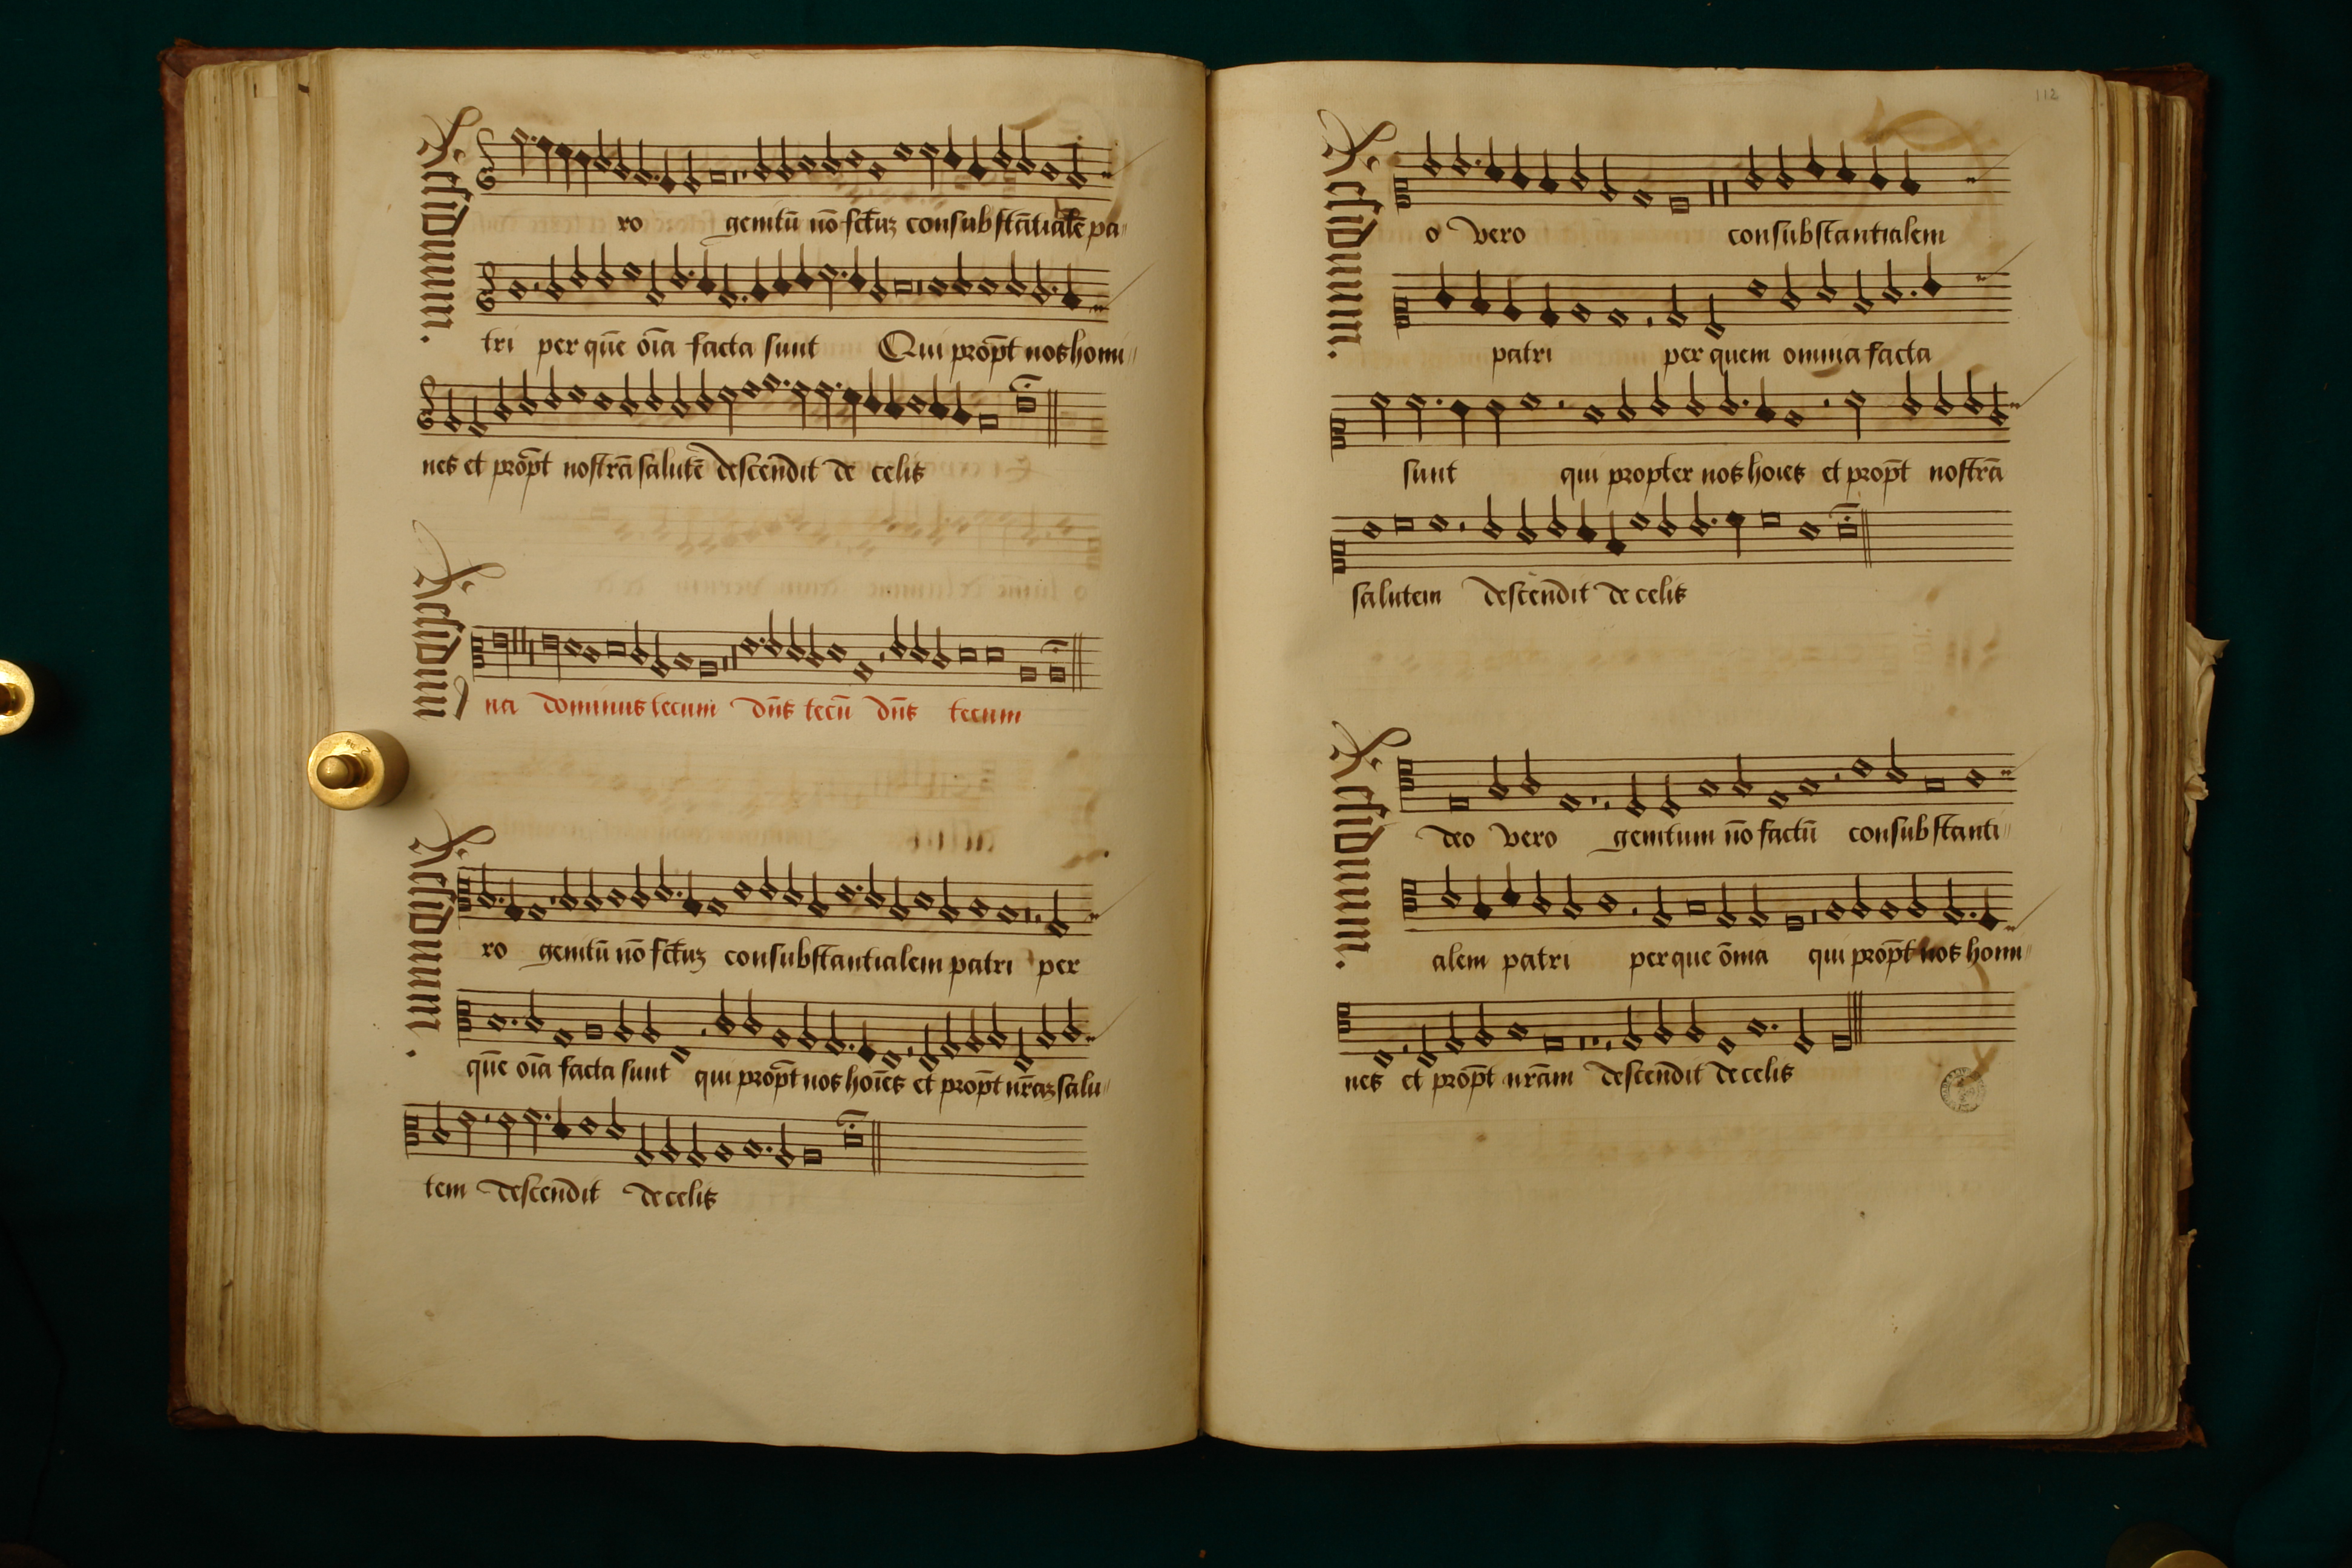 Residuum.
ro genitū nō fct̄uz consubstātialē pa
tri per quē oīa facta sunt Qui prop̄t nos homi
nes et prop̄t nostrā salutē descendit de celis
Residuum
na dominus tecum dn̄s tecū dn̄s tecum
Residuum.
ro genitū nō fct̄uz consubstantialem patri per
quē oīa facta sunt qui prop̄t nos hoīes et prop̄t nr̄az salu
tem descendit de celis
112
Residuum.
o vero consubstantialem
patri per quem omnia facta
sunt qui propter nos hoies et prop̄t nostrā
salutem descendit de celis
Residuum.
deo vero genitum nō factū consubstanti
alem patri per que ōnia qui prop̄t nos homi
nes et prop̄t nrām descendit de celis